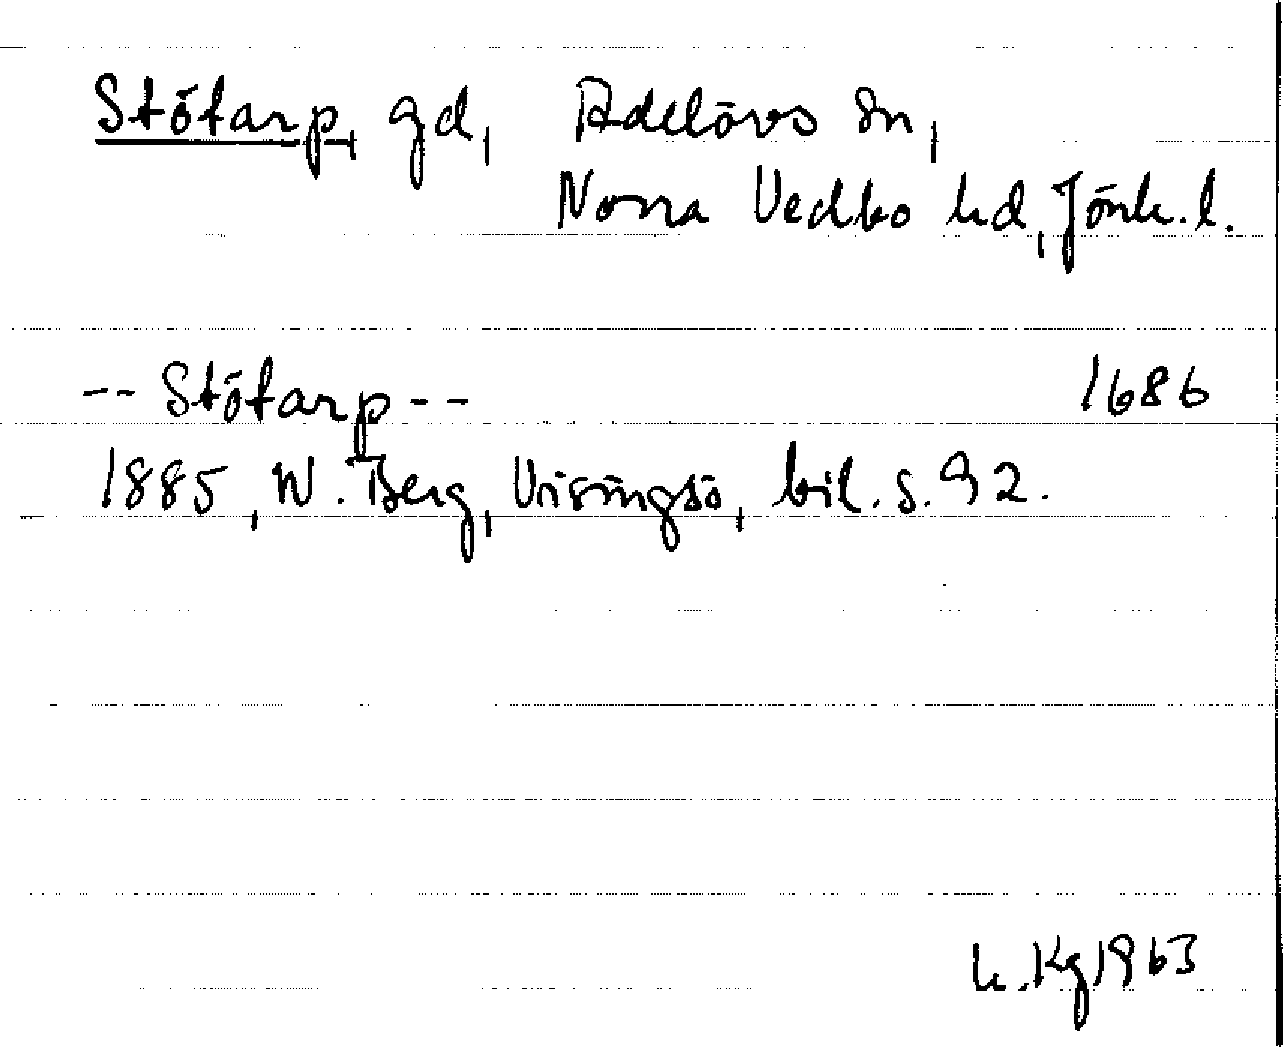 Stötarp, gd, Adelövs sn,
Norra Vedbo hd, Jönk. l.
-- Stötarp -- 1686
1885, W. Berg, Visingsö, bil. s. 92.
h. Kg 1963